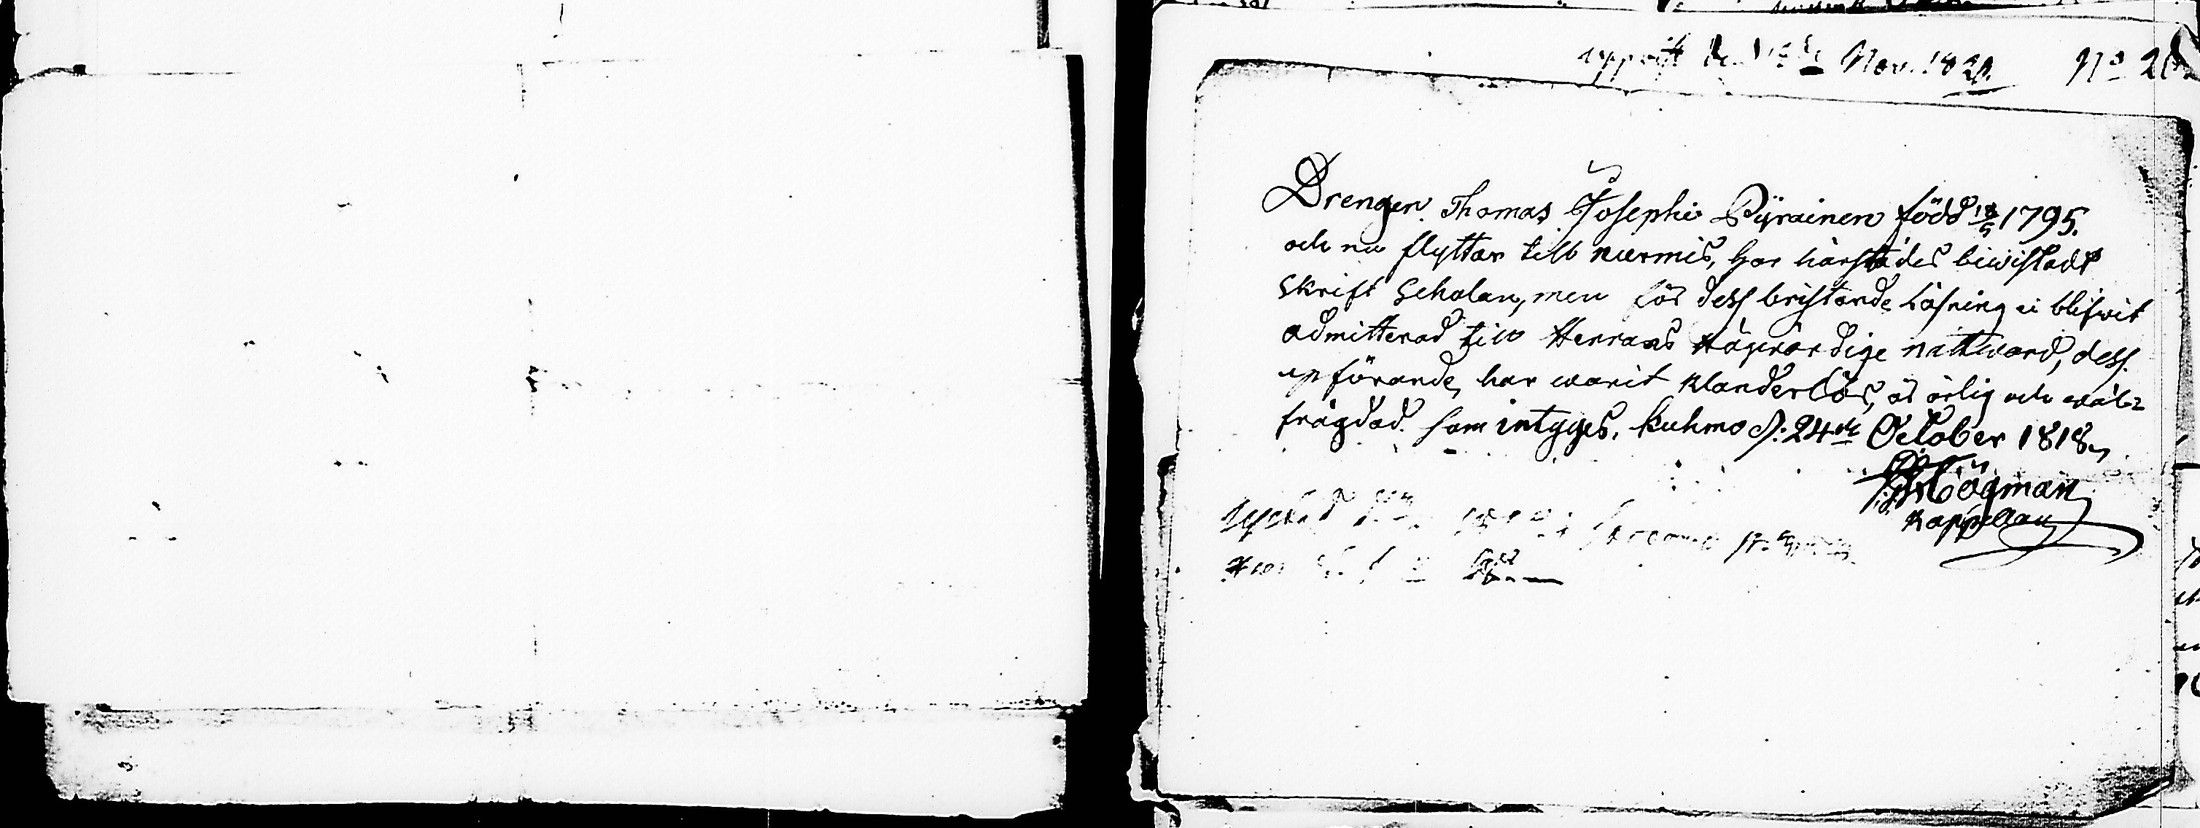 Nov. 1820. No 2
Drengen Thomas Josephs. Pyrainen född 18/5 1795.
och nu flyttar till Nurmis, har härstädes biwistadt
Skrift Scholan, men för dess bristande Läsning ei blifwit
admitterad till Herrans Högwärdige nattward, dess
upförande har warit klanderlös, är ärlig och wäl=
frägdad. Som intyges. Kuhmo d: 24de October 1818.
Högman
Kappellan